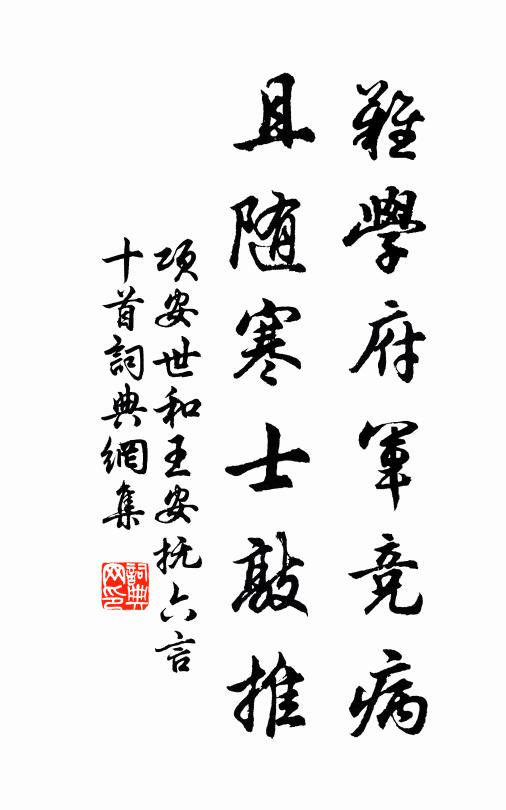 難學府軍竞病
且随寒士敲推
项安世和王安抚六言
十首詞典網集
詞典网印